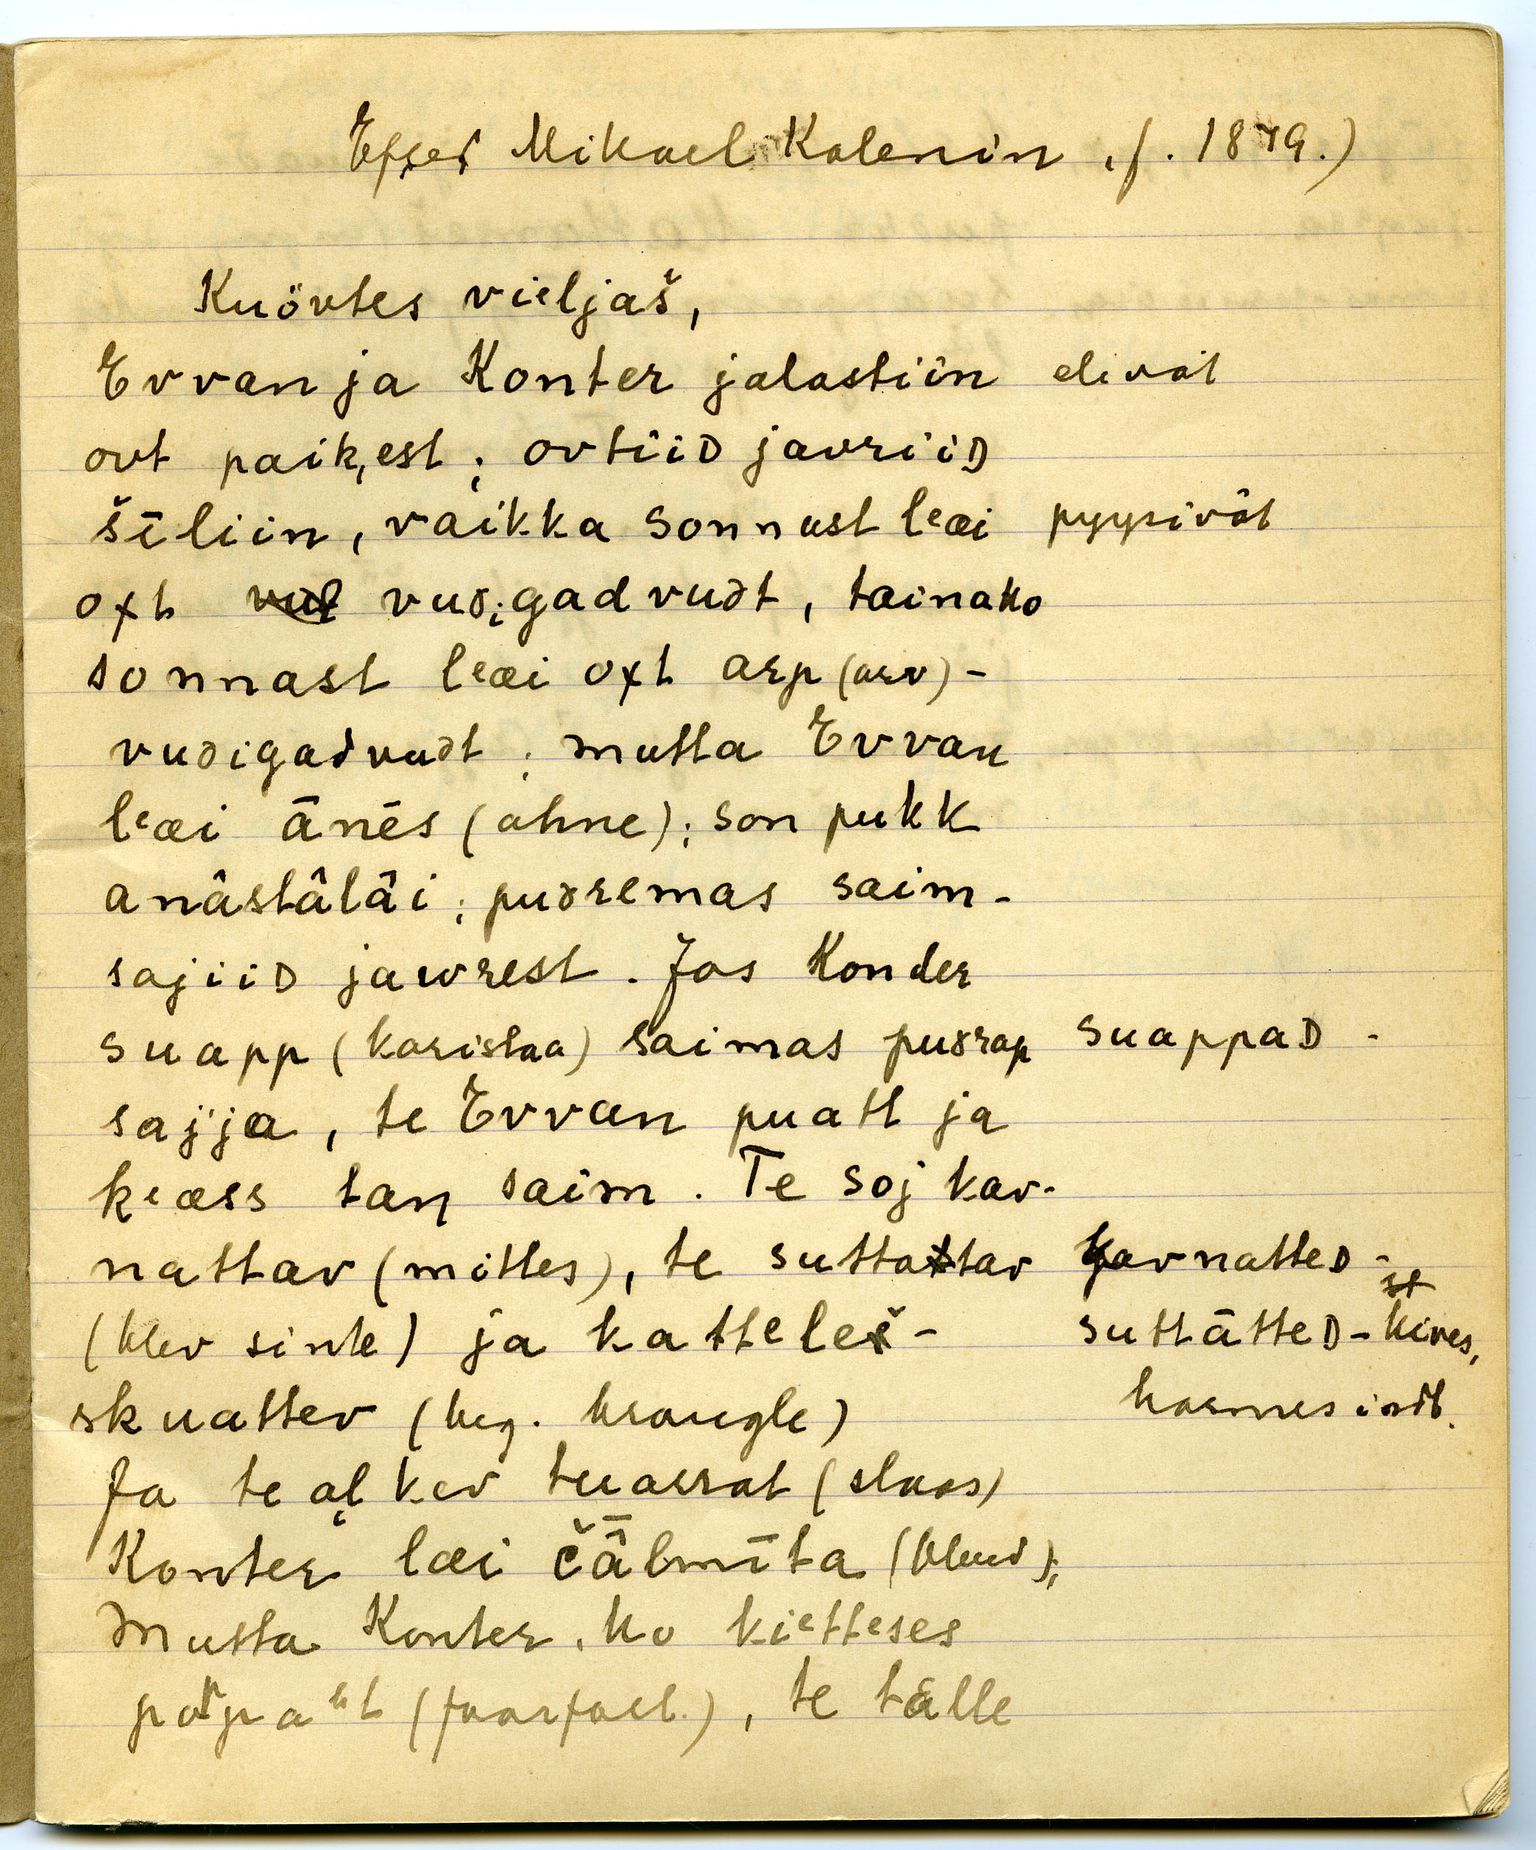 Efter Mikael Kalenin, f. 1879.)
Kuövtes vieljaš,
Evvan ja Konter jalastiin elivät
ovt paikest; ovtiiD javriiD
šēliin, vaikka sonnust leæi pyysivät
oxt vuƌigadvuƌt, tainako
sonnast leæi oxt arp (arv)-
vuƌigadvuƌt; mutta Evvan
leæi ānēs (ahne); son pukk
anâstâlâi; puƌremas saim-
sajiiD jawrest. Jos Konder
suapp (karistaa) saimas puƌrap suappaD -
sajja, te Evvan puatt ja
keæss tan saim. Te soj kav-
nattav (mittes), te suttattav kavnatteD -
(blev sinte) ja katteleš- suttâtteD - kives,
skuattev (beg. krangle) harmes indb.
Ja te alkev tuarrat (slaas)
Konter læi čālmīta (blind);
Mutta Konter, ko kietteses
(faarfaet.), te tālle